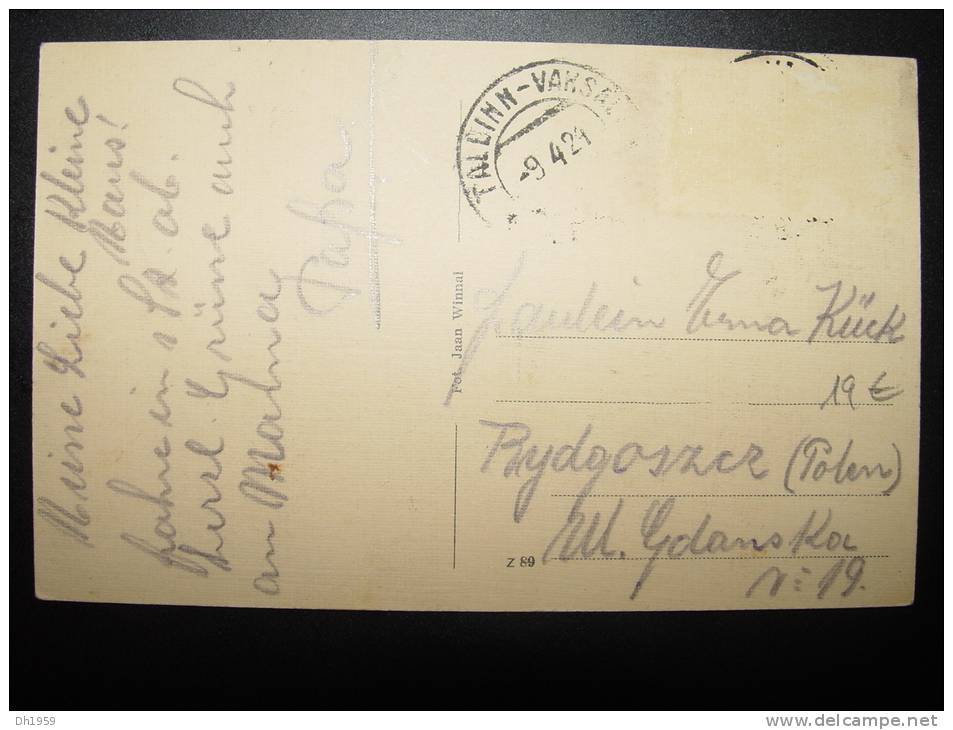 Meine Liebe Kleine
Maus!
fahre in s St. ab.
herzl. Grüsse auch
an Mama
Papa
TALLINN-VAKSAL
-9.4.24
Fot. Jaan Winnal
Fräulein Erna Kück
19 €
Bydgoszcz (Polen)
Ul. Gdanska
No: 19.
Z 89
Dh1959
http://www.delcampe.net